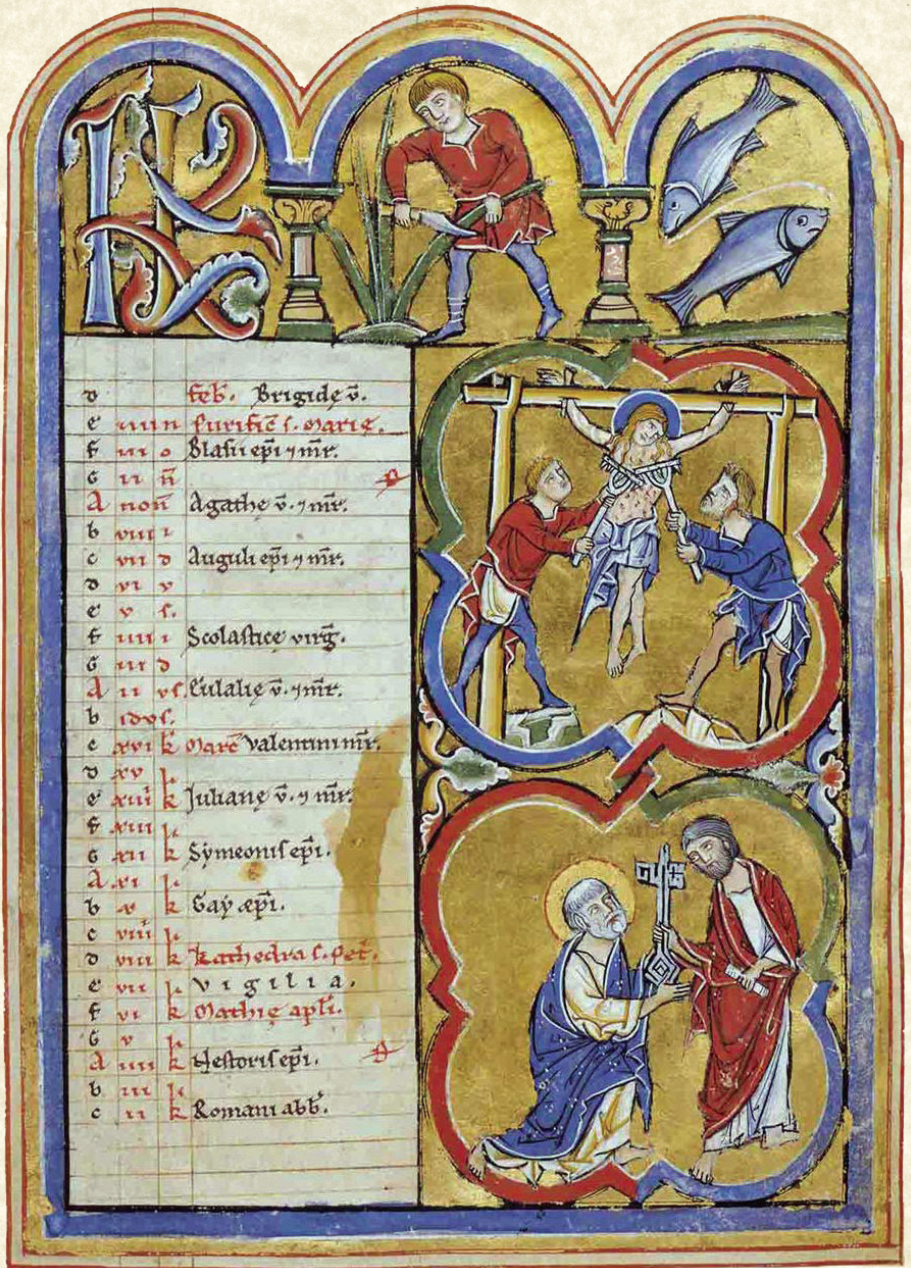 KL
d feb. Brigide v̄.
e iiii n Purific̄ s. Marie.
f iii o Blasii ep̄i ⁊ mr̄.
G ii n̄ D
A non̄ Agathe v̄. ⁊ mr̄.
b viii i
c vii d Auguli ep̄i ⁊ mr̄.
d vi v
e v s.
f iiii i Scolastice virḡ.
G iii d
A ii vs. Eulalie v̄. ⁊ mr̄.
b idvs.
c xvi k Marc̄ Valentini mr̄.
d xv k
e xiiii k Juliane v̄. ⁊ mr̄.
f xiii k
G xii k Symeonis ep̄i.
A xi k
b x k Gay ep̄i.
c viiii k
d viii k Kathedra s. Pet̄.
e vii k vigilia.
f vi k Mathie apl̄i.
G v k
A iiii k Nestoris ep̄i. D
b iii k
c ii k Romani abb̄.